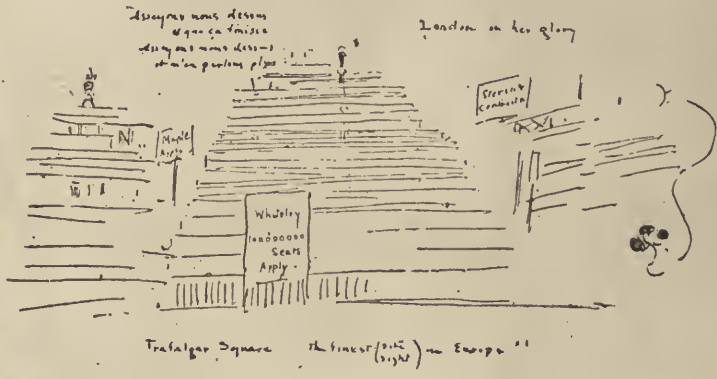 Asseyons nous dessus
et que ça finisse
Asseyons nous dessus
et n'en parlons plus
London in her glory
Maple
Stewards
Whiteley
100000000
Seats
Apply.
Trafalgar Square the finest (site sight) in Europe !!